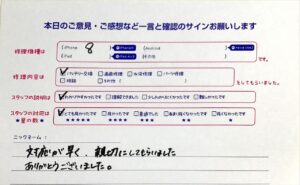 本日のご意見・ご感想など一言と確認のサインお願いします
修理機種は
iPhone 8
Android
iPad
その他
修理内容は
バッテリー交換
画面修理
水没修理
パーツ修理
その他
としてもらいました。
スタッフの説明は
わかりやすかったです
理解できました
少しわかりにくかったです
難しかったです
スタッフの対応は
★星の数★
とても良かったです
良かったです
普通でした
★★★★★
★★★★
★★★
★★
★
ニックネーム：
対応が早く、親切にしてもらいました
ありがとうございました。